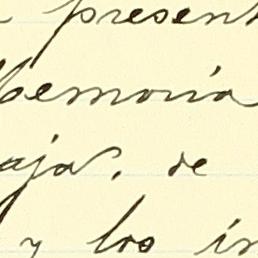 present
Memoria
aja, de
y los in